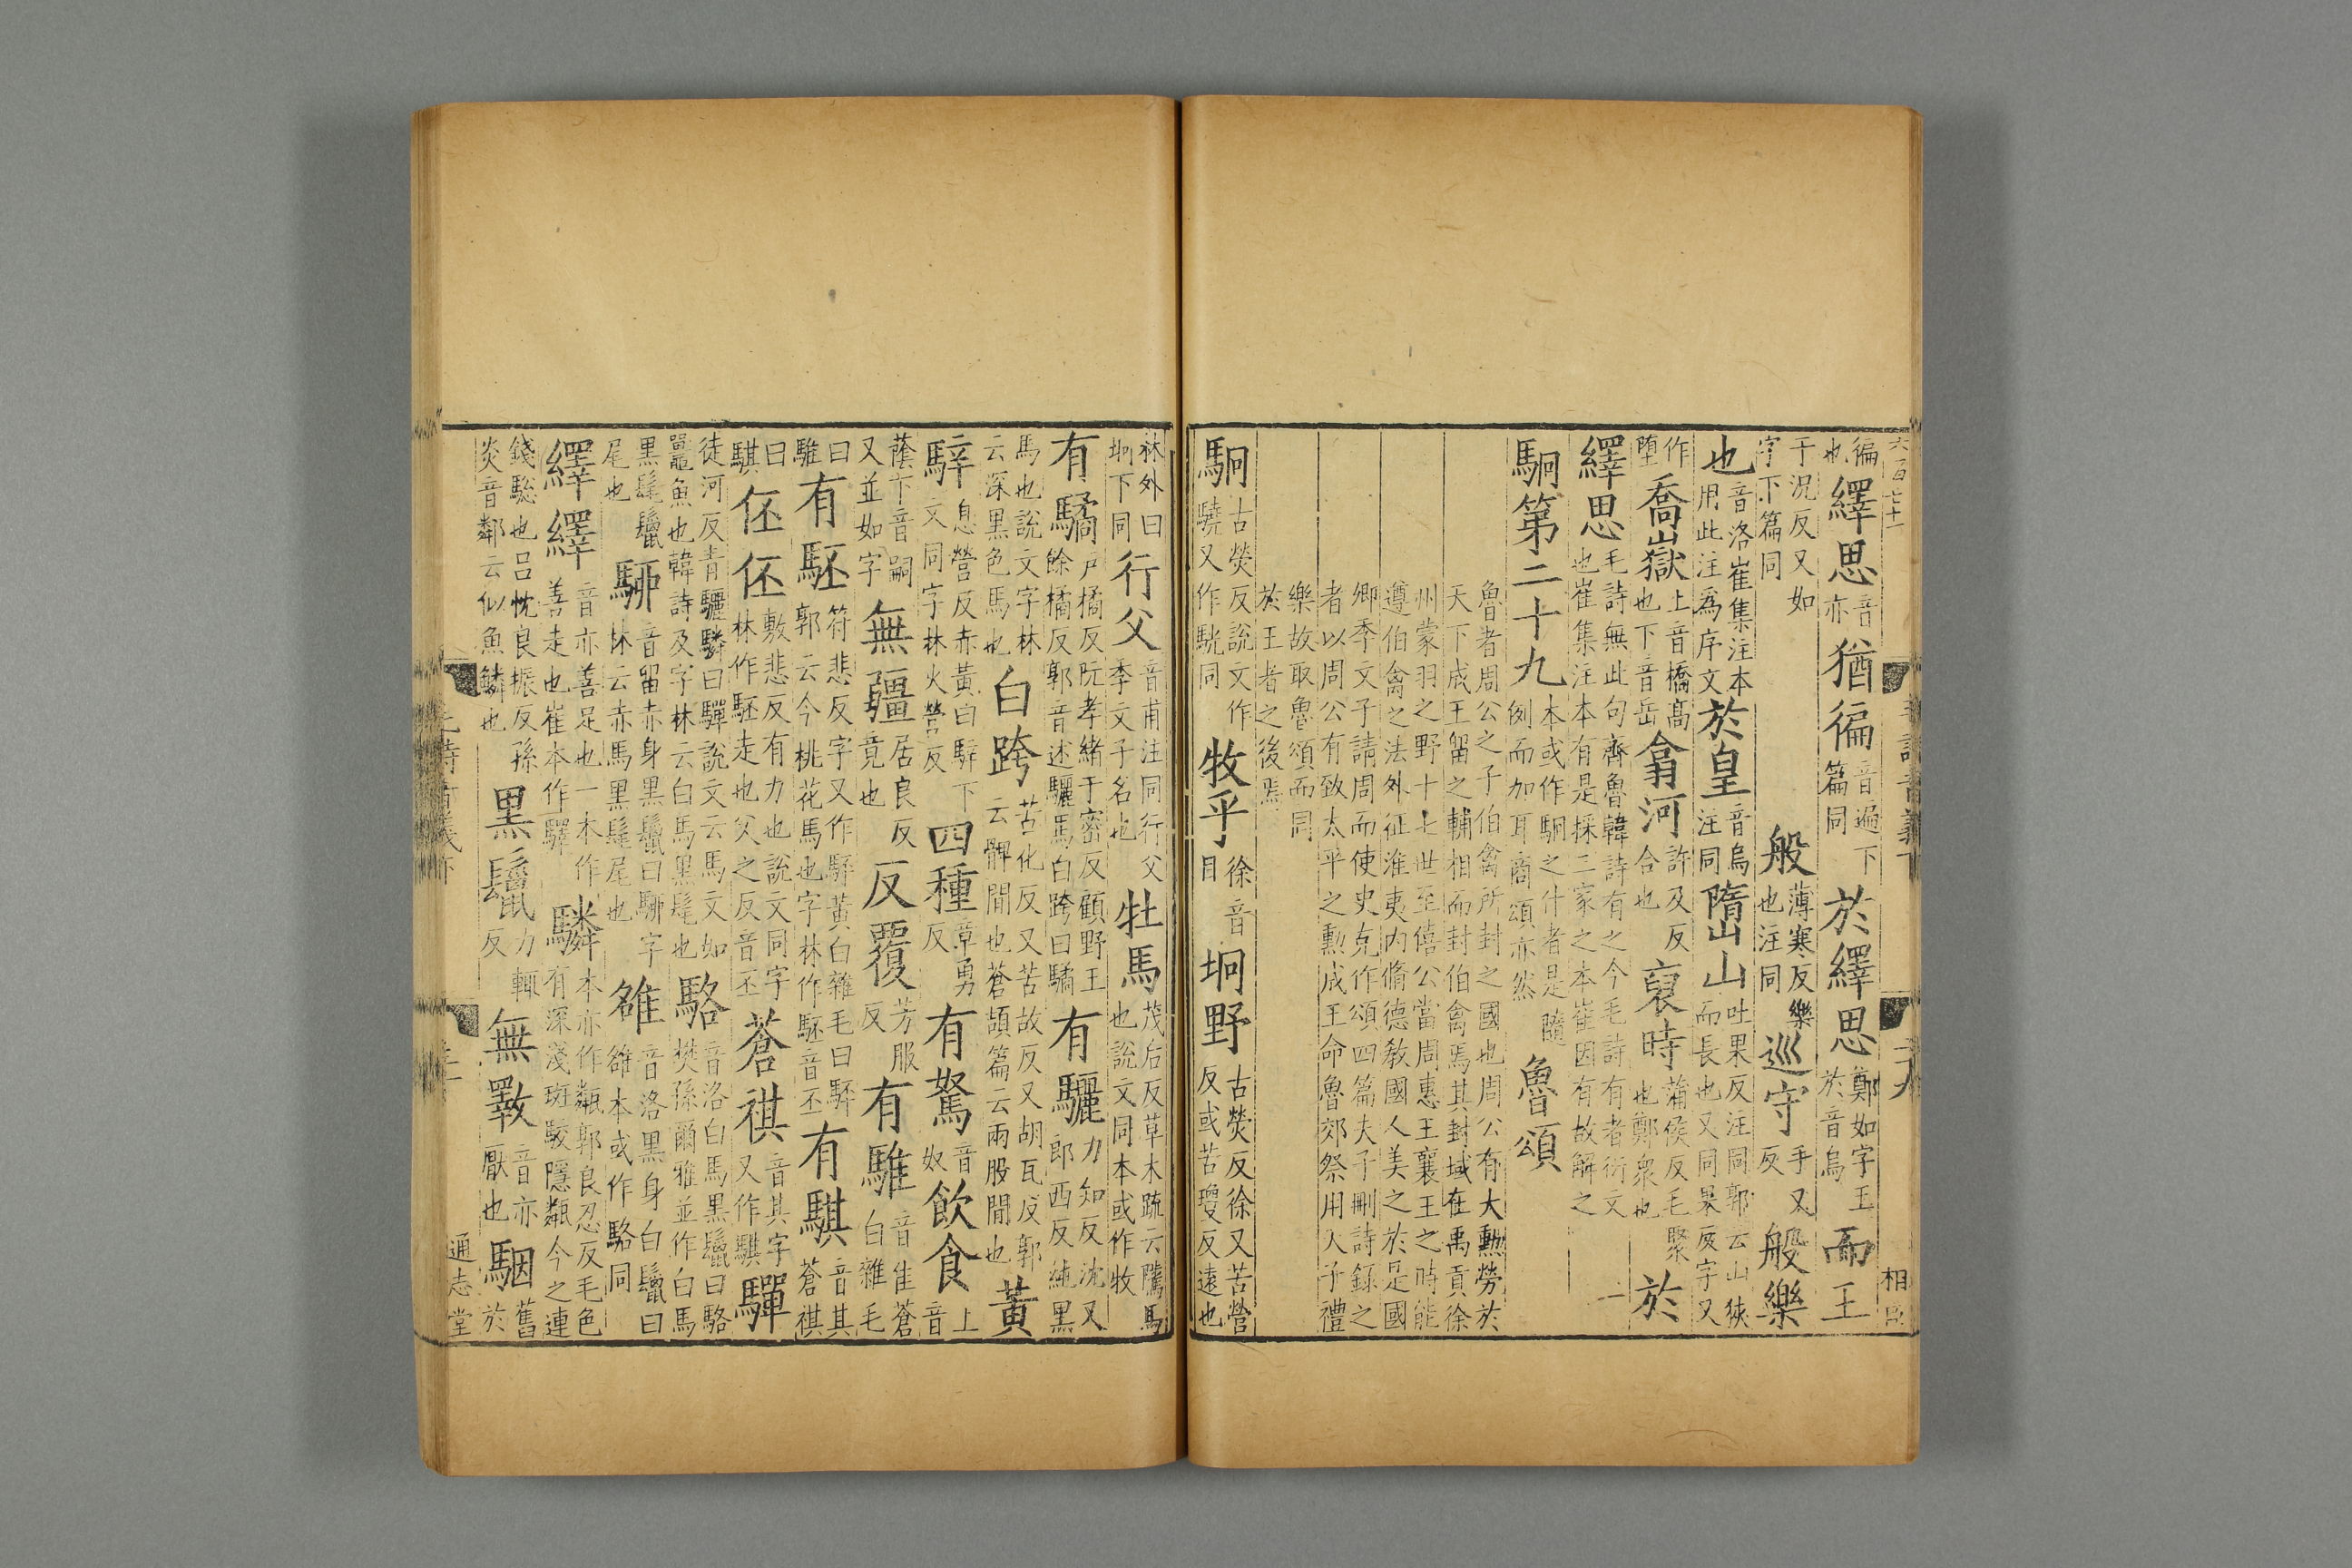 六百七十一 二十九
徧也繹思音亦猶徧音遍下篇同於繹思鄭如字王於音烏而王
于況反又如字下篇同般薄寒反樂也注同巡守手又反般樂
也音洛崔集注本用此注為序文於皇音烏注同隓山吐果反注同郭云山狹而長也又同果反字又
作墮喬嶽上音橋高也下音岳翕河許及反合也裒時蒲侯反毛聚也鄭衆也於
繹思毛詩無此句齊魯韓詩有之今毛詩有者衍文也崔集注本有是採三家之本崔因有故解之
駉第二十九本或作駉之什者是隨例而加耳商頌亦然魯頌
魯者周公之子伯禽所封之國也周公有大勲勞於
天下成王留之輔相而封伯禽焉其封域在禹貢徐
州蒙羽之野十七世至僖公當周惠王襄王之時能
遵伯禽之法外征淮夷内脩德敎國人美之於是國
卿季文子請周而使史克作頌四篇夫子刪詩録之
者以周公有致太平之勲成王命魯郊祭用天子禮
樂故取魯頌而同
於王者之後焉
駉古熒反說文作驍又作駫同牧乎徐音目坰野古熒反徐又苦營反或苦瓊反遠也
林外曰坰下同行父音甫注同行父季文子名也牡馬茂后反草木疏云騭馬也說文同本或作牧
有驈戶橘反阮孝緒于密反顧野王餘橘反郭音述驪馬白跨曰驈有驪力知反沈又郎西反純黑
馬也說文字林云深黑色馬也白跨苦化反又苦故反又胡瓦反郭云髀間也蒼頡篇云兩股間也黃
騂息營反赤黃曰騂下文同字林火營反四種章勇反有駑音奴飲食上音
蔭下音嗣又並如字無疆居良反竟也反覆芳服反有騅音隹蒼白雜毛
曰騅有駓符悲反字又作黃白雜毛曰駓郭云今桃花馬也字林作駓音丕有騏音其蒼祺
曰騏伾伾敷悲反有力也說文同字林作駓走也父之反音丕蒼祺音其字又作騏驒
徒河反青驪驎曰驒說文云馬文如鼉魚也韓詩及字林云白馬黑髦也駱音洛白馬黑鬣曰駱樊孫爾雅並作白馬
黑髦鬣尾也駵音留赤身黑鬣曰駵字林云赤馬黑髦尾也雒音洛黑身白鬣曰雒本或作駱同
繹繹音亦善足也一本作善走也崔本作驛驎本亦作甐郭良忍反毛色有深淺斑駮隱甐今之連
錢驄也呂忱良振反孫炎音鄰云似魚鱗也黑鬣力輒反無斁音亦厭也駰舊於
通志堂